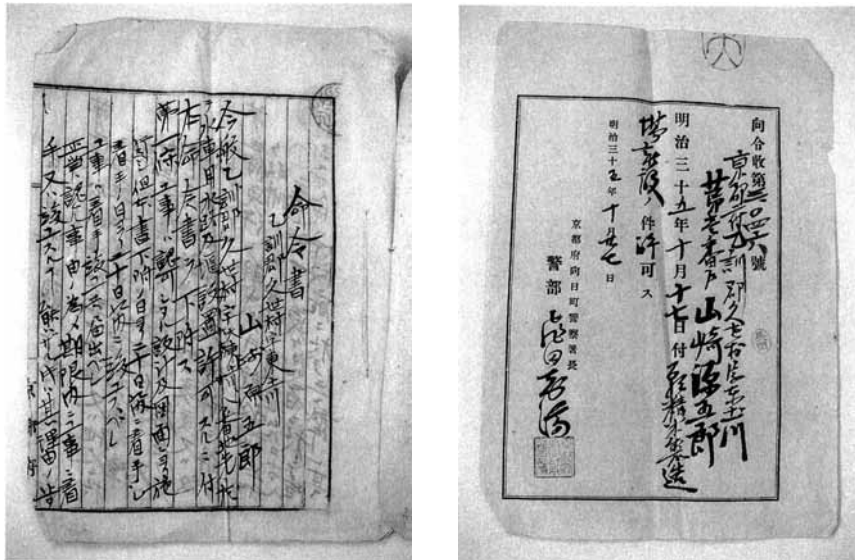 命令書
乙訓郡久世村字東土川
山崎源五郎
今般乙訓郡久世村字東土川番地先地
ニ水車用水路及樋設置許可スルニ付
左ノ命令書ヲ下附ス
第一條 工事ハ認可シタル設計及図面ニヨリ施
行シ但本書下附ノ日ヨリ二十日以内ニ着手シ
着手ノ日ヨリ二十日以内ニ竣工スベシ
工事ノ着手竣工共届出ベシ
事由ノ為メ期限内ニ工事ニ着
手又ハ竣工スル能ハザル時ハ其理由
京都府
向令收第三〇四六號
京都府乙訓郡久世村字東土川
番戸 山崎源五郎
明治三十五年十月十七日付願精米製造
場建設ノ件許可ス
明治三十五年十月廿七日
京都府向日町警察署長
警部